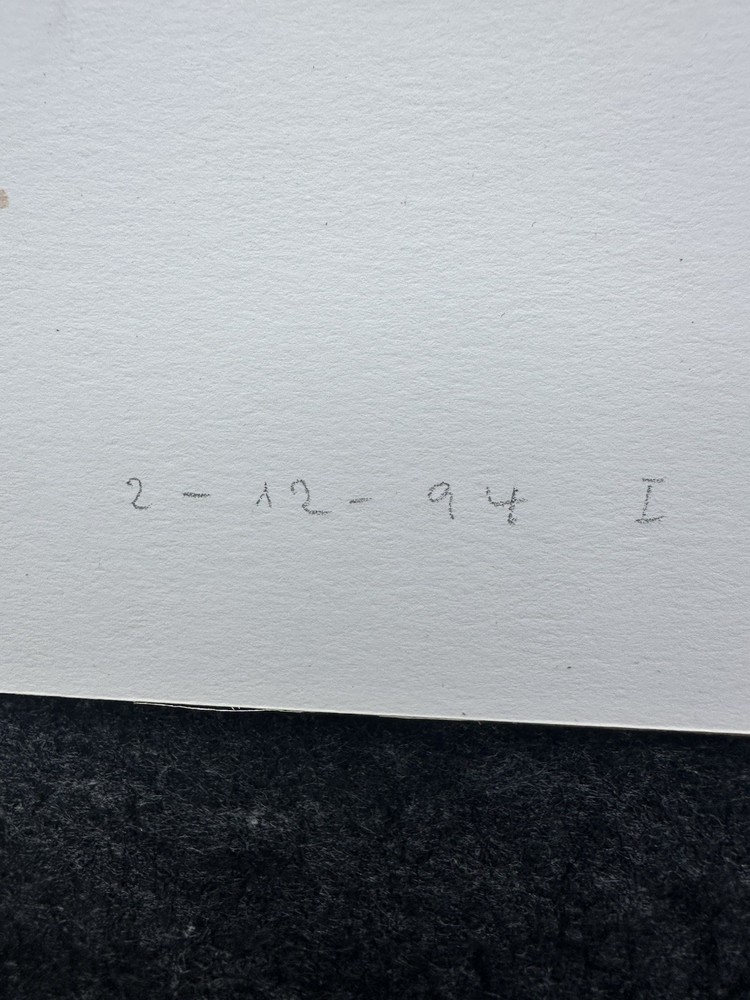 2 - 12 - 94 I